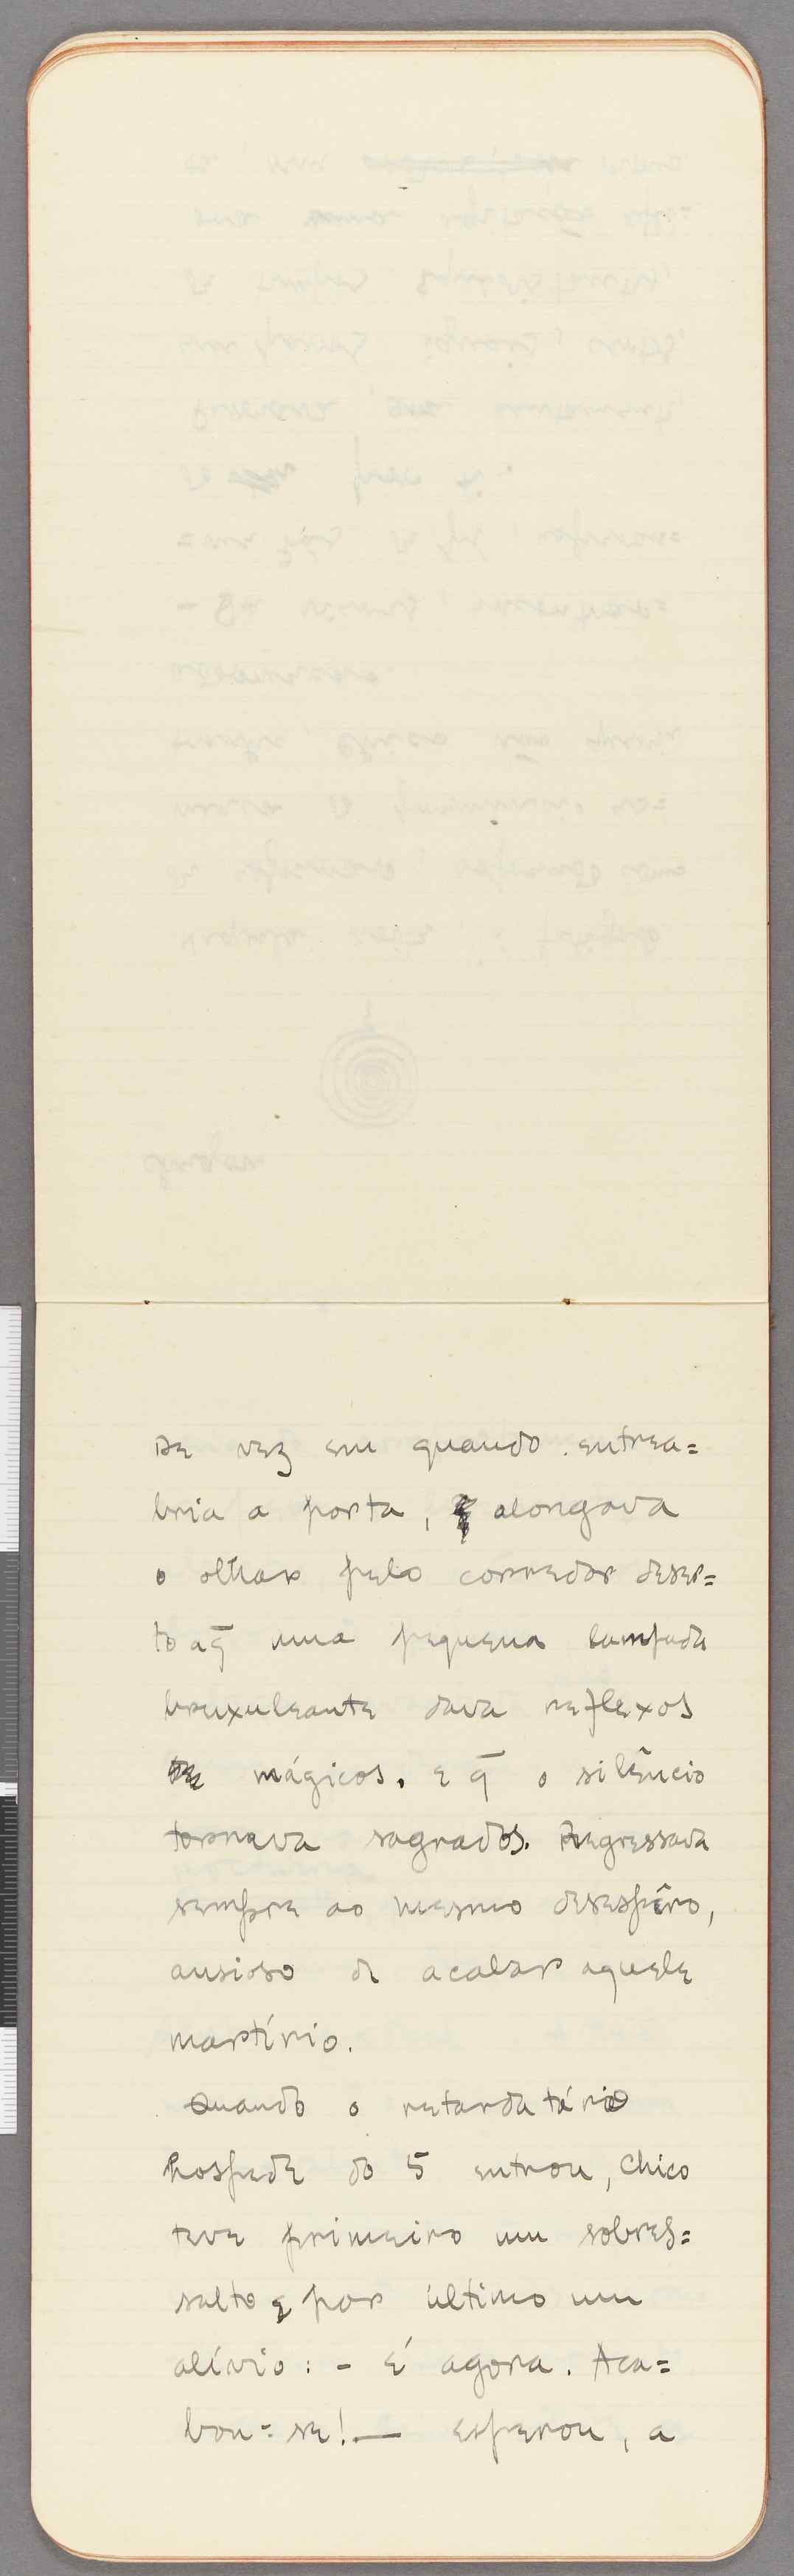 De vez em quando entrea=
bria a porta, e alongava
o olhar pelo corredor deser=
to a q̄ uma pequena lampada
bruxuleante dava reflexos
mágicos. e q̄ o silêncio
tornava sagrados. Regressava
sempre ao mesmo desespêro,
ansioso de acabar aquele
martírio.
Quando o retardatário
hospede do 5 entrou, Chico
teve primeiro um sobres=
salto e por último um
alívio: - É agora. Aca=
bou-se! — esperou, a